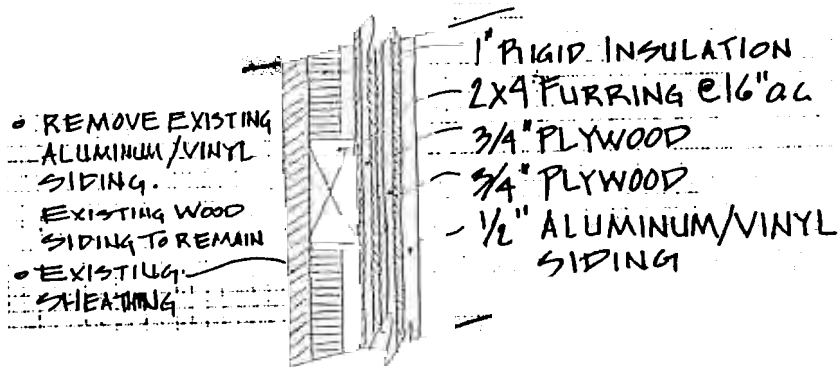 • REMOVE EXISTING
ALUMINUM/VINYL
SIDING.
EXISTING WOOD
SIDING TO REMAIN
• EXISTING
SHEATHING
1" RIGID INSULATION
2X4 FURRING @16" O.C
3/4" PLYWOOD
3/4" PLYWOOD
1/2" ALUMINUM/VINYL
SIDING